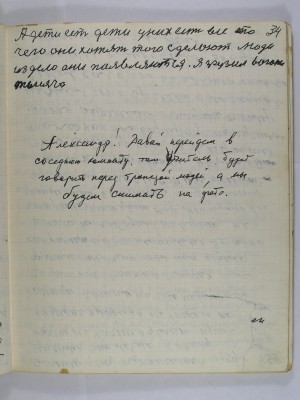 А дети ест дети у них ест все это 34
чего они хотят того сделоют люди
из дело они появляются. Я грузил вогоны
Александр! Давай перейдем в
соседнюю комнату, там Учитель будет
говорить перед трапезой людей, а мы
будем снимать на фото.